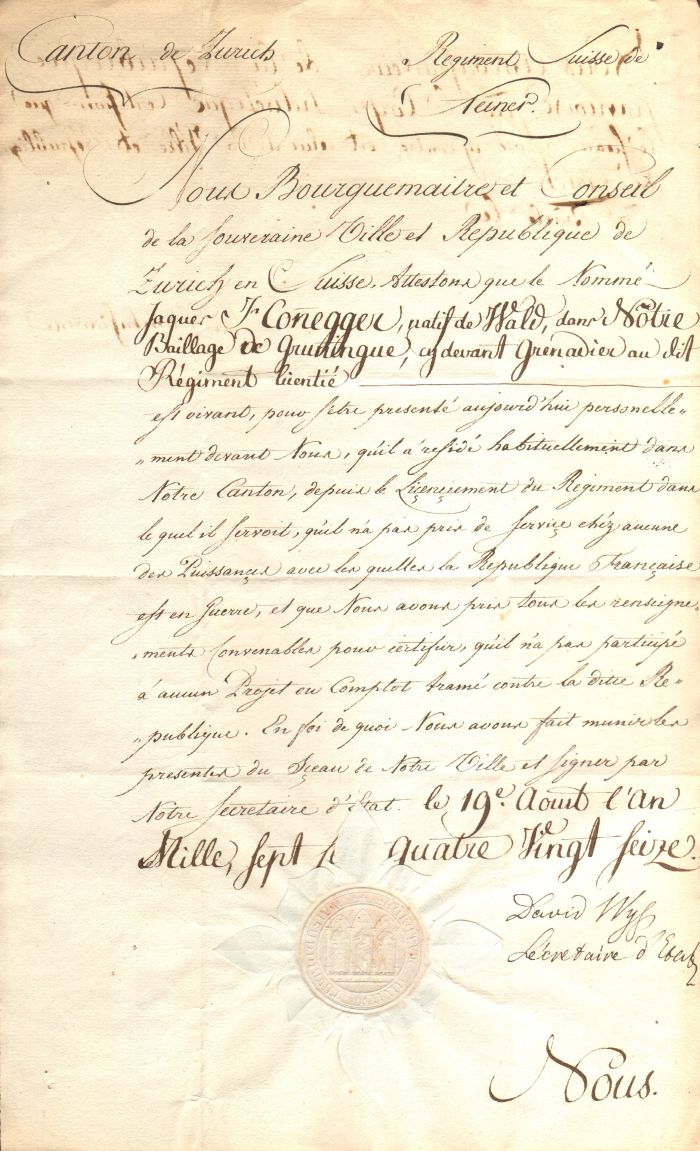 Canton de Zurich
Regiment Suisse de
Steiner.
Nous Bourguemaitre et Conseil
de la souveraine Ville et Republique de
Zurich en Suisse. Attestons que le Nommé
Jaques Conegger, natif de Wald, dans Nôtre
Baillage de Gruningue, cy devant Grenadier au dit
Régiment licentié
est vivant, pour s'etre presenté aujourd'hui personelle=
=ment devant Nous, qu'il a residé habituellement dans
Notre Canton, depuis le Liçençiement du Régiment dans
le quel il servoit, qu'il n'a pas pris de serviçe chéz aucune
des Puissançes avec les quelles la Republique Française
est en Guerre, et que Nous avons pris tous les renseigne=
=ments Convenables pour certifier, qu'il n'a pas participé
à aucun Projet ou Complot tramé contre la ditte Re=
=publique. En foi de quoi Nous avons fait munir les
presentes du Sçeau de Notre Ville et signer par
Notre Secretaire d'Etat. le 19e. Aout l'An
Mille, sept quatre Vingt seize.
David Wyß
Sécretaire d'Etat
Nous.